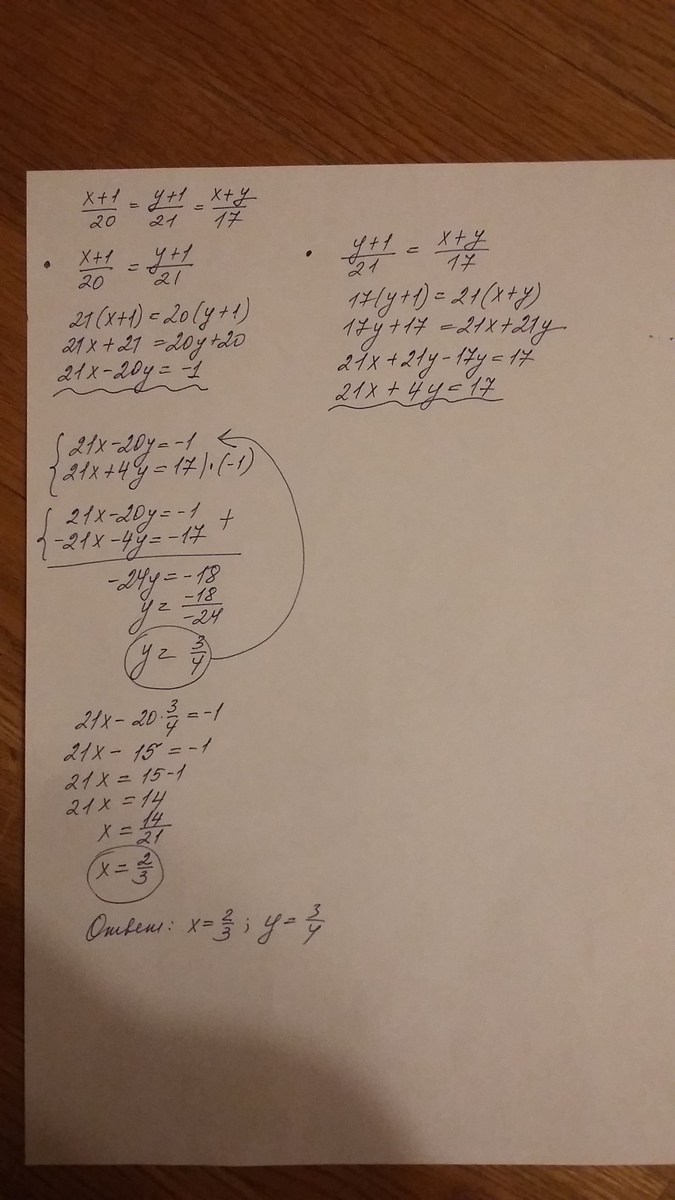 x+1/20 = y+1/21 = x+y/17
• x+1/20 = y+1/21
21(x+1)=20(y+1)
21x+21=20y+20
21x-20y=-1
• y+1/21 = x+y/17
17(y+1)=21(x+y)
17y+17=21x+21y
21x+21y-17y=17
21x+4y=17
{21x-20y=-1
21x+4y=17|·(-1)
{21x-20y=-1 +
-21x-4y=-17
-24y=-18
y=-18/-24
y=3/4
21x-20·3/4=-1
21x-15=-1
21x=15-1
21x=14
x=14/21
x=2/3
Ответ: x=2/3; y=3/4